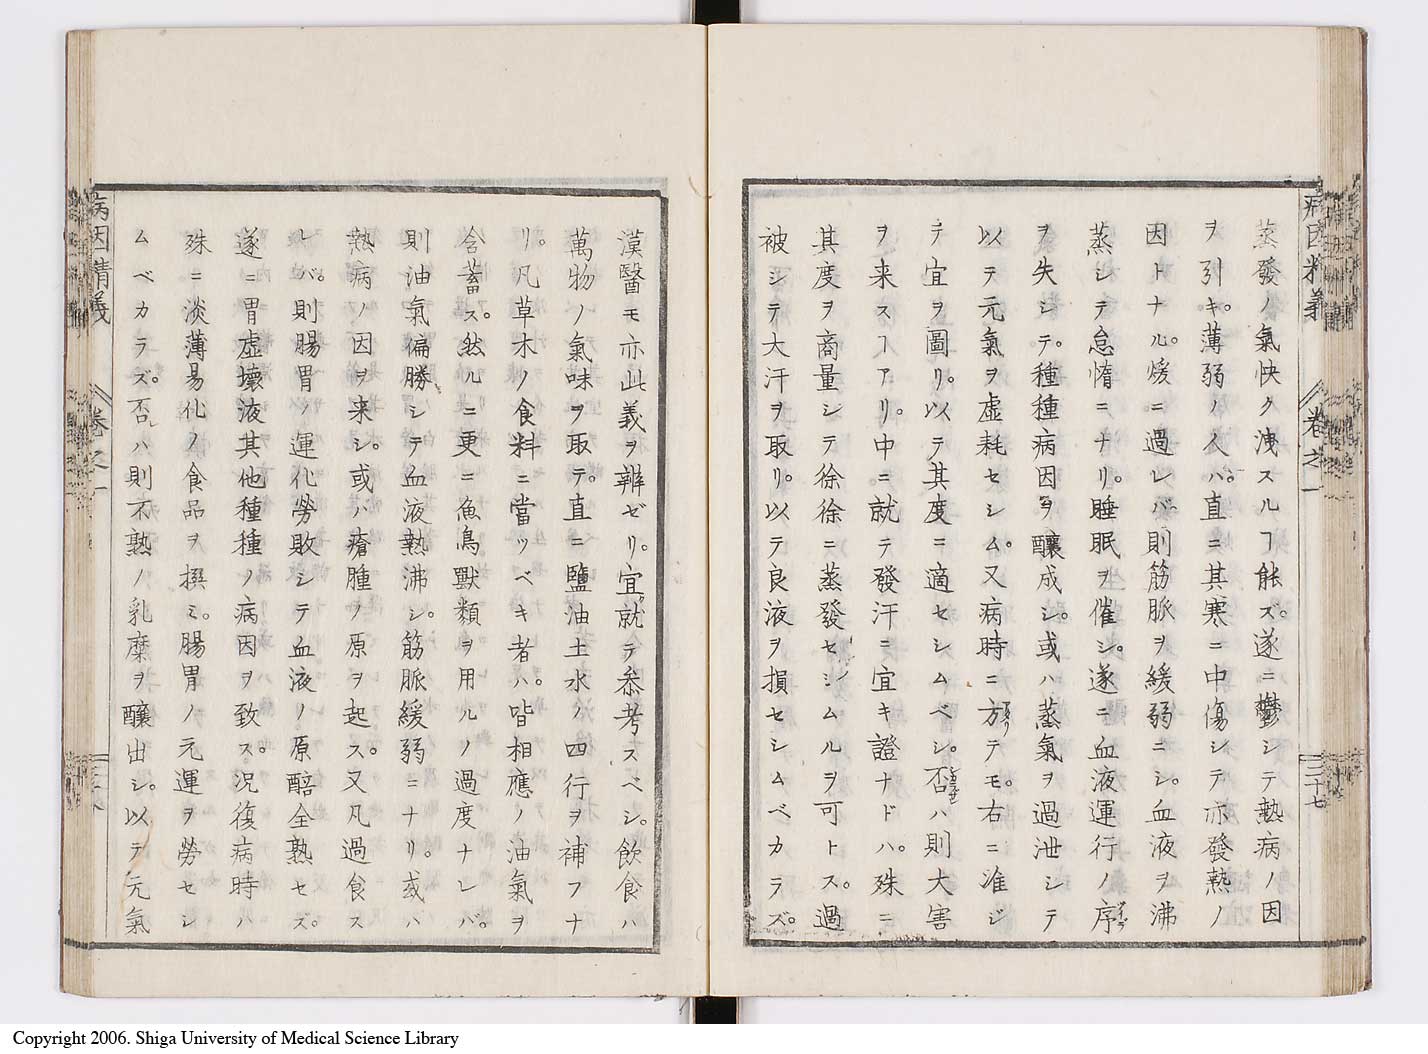 蒸發ノ氣快ク洩スルヿ能ズ。遂ニ鬱シテ熱病ノ因
ヲ引キ。薄弱ノ人ハ。直ニ其寒ニ中傷シテ亦發熱ノ
因トナル。煖ニ過レバ則筋脈ヲ緩弱ニシ。血液ヲ沸
蒸シテ怠惰ニナリ。睡眠ヲ催シ。遂ニ血液運行ノ序
ヲ失シテ。種種病因ヲ釀成シ。或ハ蒸氣ヲ過泄シテ
以テ元氣ヲ虛耗セシム。又病時ニ方テモ。右ニ准ジ
テ宜ヲ圖リ。以テ其度ニ適セシムベシ。否ハ則大害
ヲ来スヿアリ。中ニ就テ發汗ニ宜キ證ナドハ。殊ニ
其度ヲ商量シテ徐徐ニ蒸發セシムルヲ可トス。過
被シテ大汗ヲ取リ。以テ良液ヲ損セシムベカラズ。
病因精義 卷之一 二十七
漢醫モ亦此義ヲ辨ゼリ。宜就テ參考スベシ。飲食ハ
萬物ノ氣味ヲ取テ。直ニ鹽油土水ノ四行ヲ補フナ
リ。凡草木ノ食料ニ當ツベキ者ハ。皆相應ノ油氣ヲ
含蓄ス。然ルニ更ニ魚鳥獸類ヲ用ルノ過度ナレバ。
則油氣偏勝シテ血液熱沸シ。筋脈緩弱ニナリ。或ハ
熱病ノ因ヲ来シ。或ハ瘡腫ノ原ヲ起ス。又凡過食ス
レバ。則腸胃ノ運化勞敗シテ血液ノ原醅全熟セズ。
遂ニ胃虛壞液其他種種ノ病因ヲ致ス。況復病時ハ
殊ニ淡薄易化ノ食品ヲ撰ミ。腸胃ノ元運ヲ勞セシ
ムベカラズ。否ハ則不熟ノ乳糜ヲ釀出シ。以テ元氣
病因精義 卷之一
Copyright 2006. Shiga University of Medical Science Library